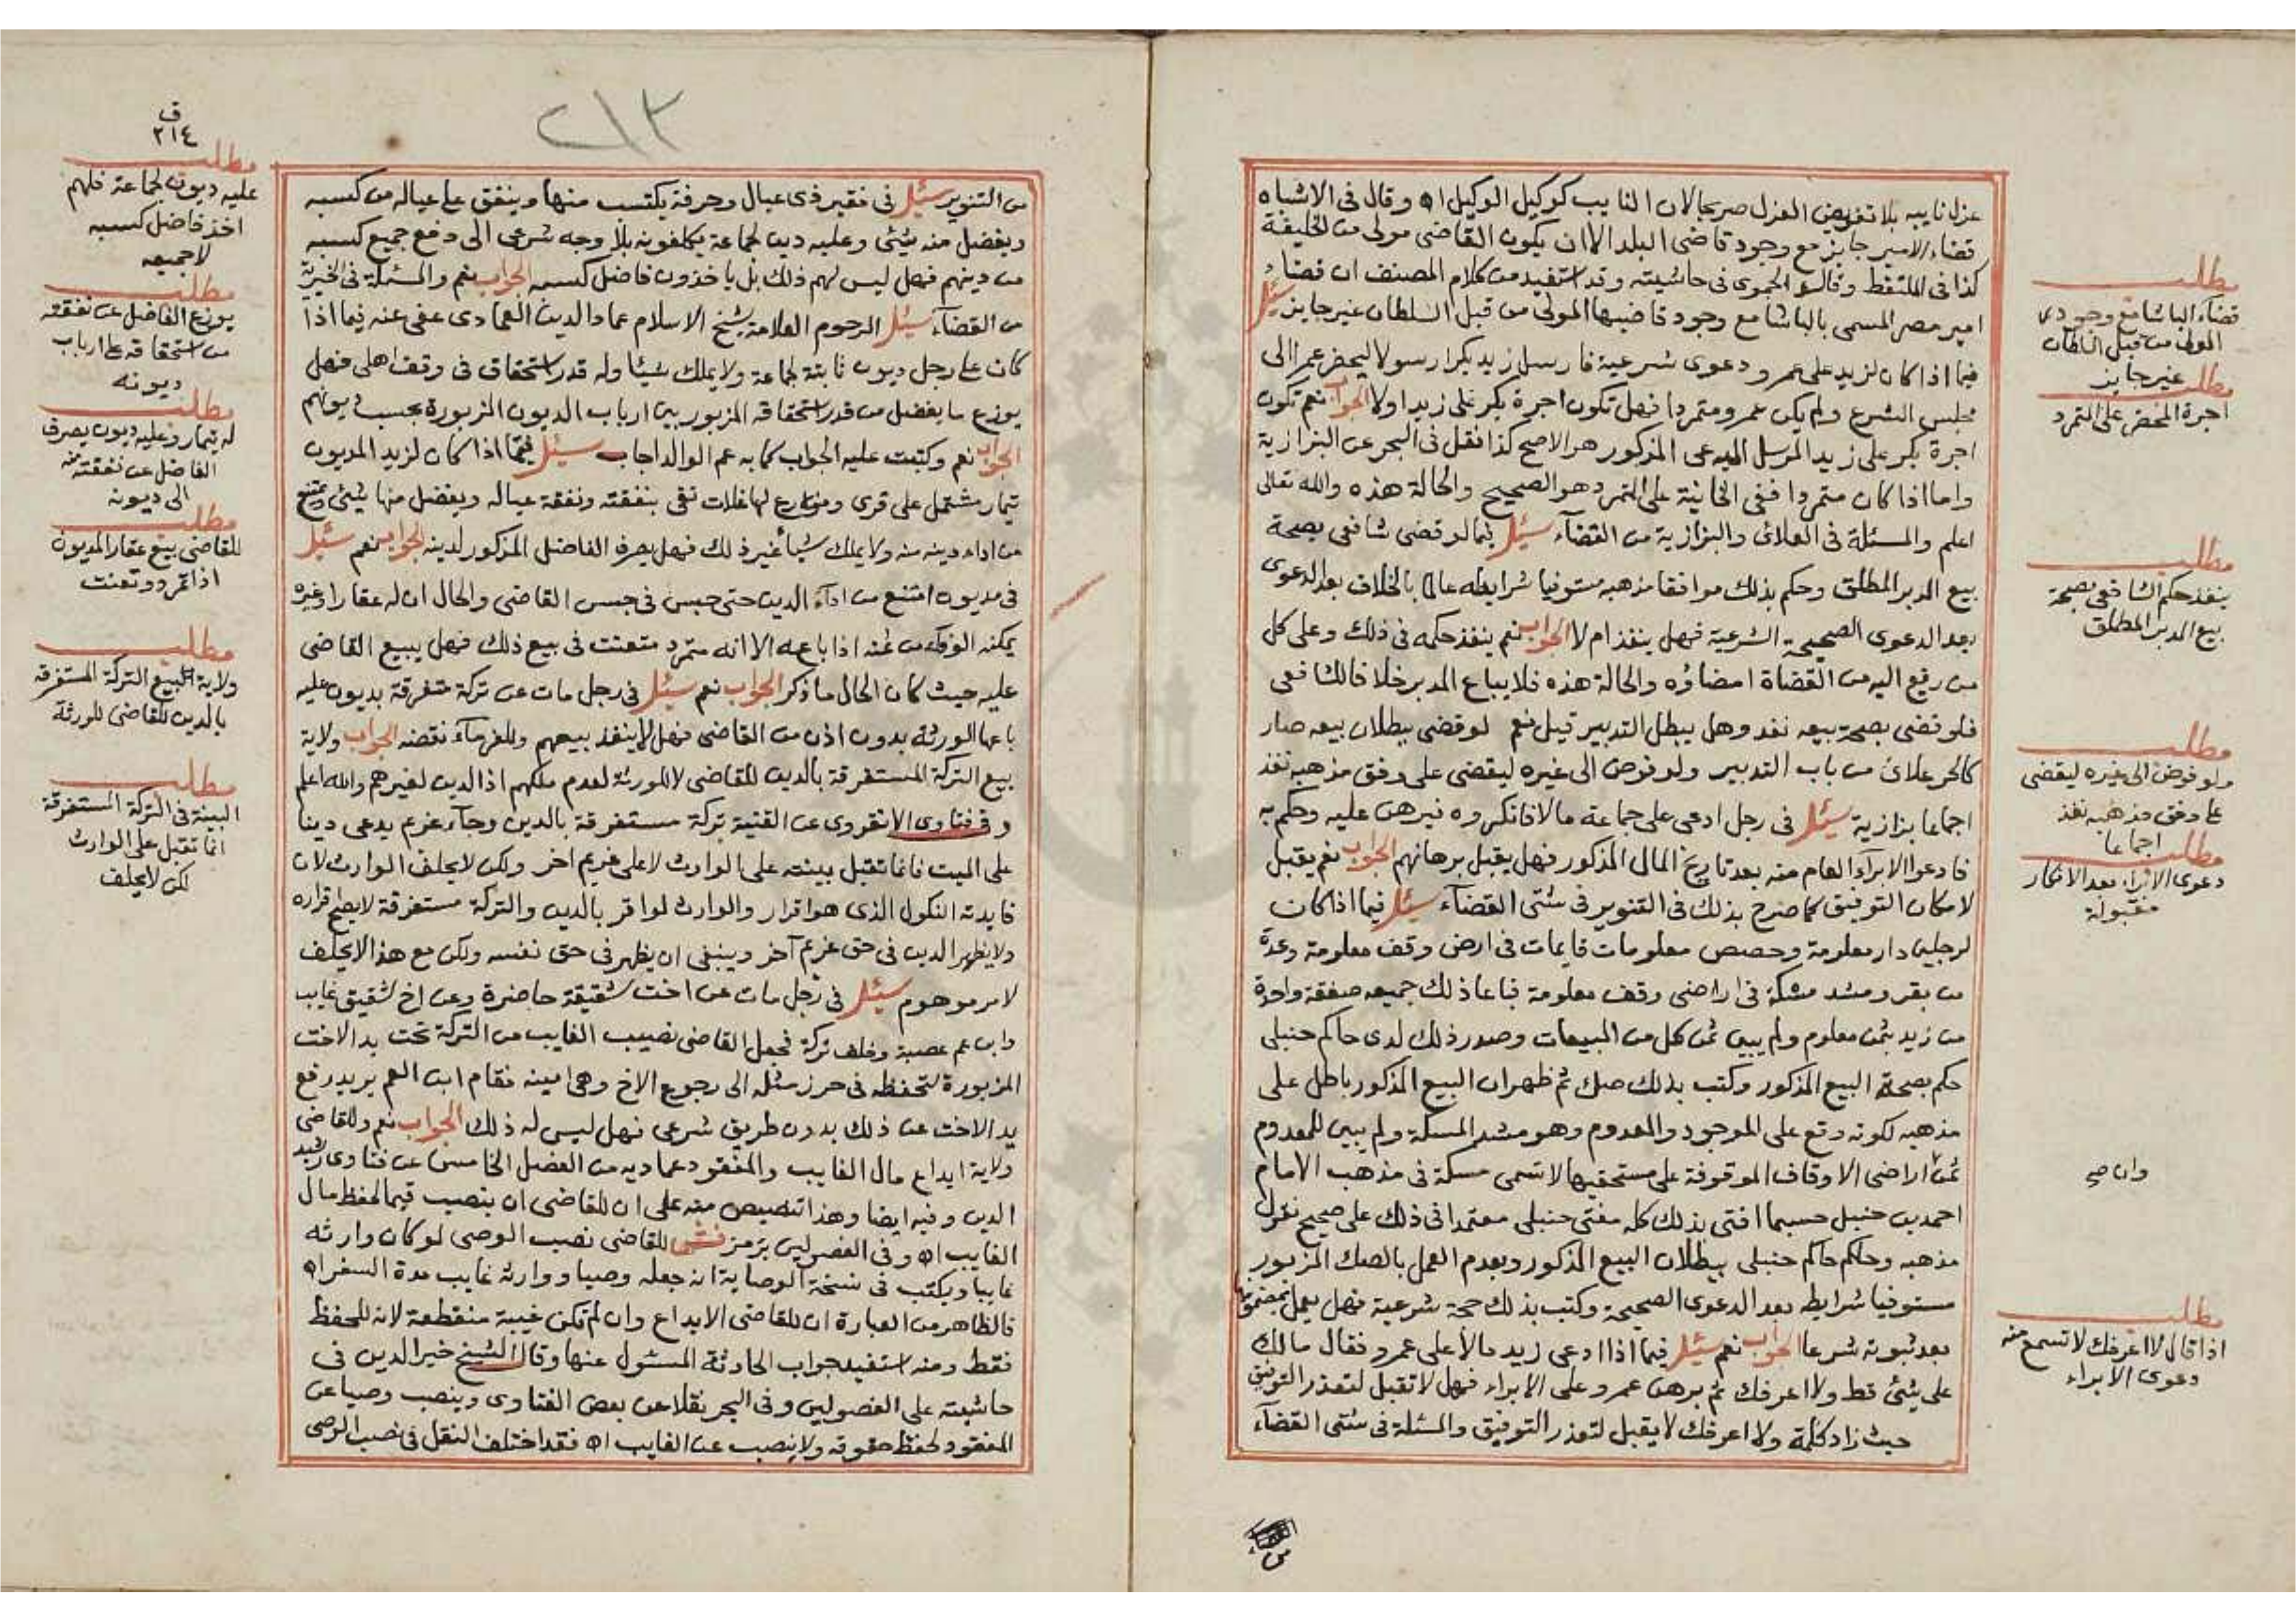 عزل نايبه بلا تفويض العزل صريحا لان النايب كوكيل الوكيل اه وقال في الاشباه
قضاء الامير جايز مع وجود قاضي البلد الا ان يكون القاضي مولى من الخليفة
كذا في الملتقط وقال الحموي في حاشيته وقد استفيد من كلام المصنف ان قضاء
امير مصر المسمى بالباشا مع وجود قاضيها المولى من قبل السلطان غير جايز سئل
فيما اذا كان لزيد على عمرو دعوى شرعية فارسل زيد بكرا رسولا ليحضر عمرا الى
مجلس الشرع ولم يكن عمرو متمردا فهل تكون اجرة بكر على زيد اولا الجواب نعم تكون
اجرة بكر على زيد المرسل المدعي المذكور هو الاصح كذا نقل في البحر عن البزازية
واما اذا كان متمردا ففي الخانية على المتمرد هو الصحيح والحالة هذه والله تعالى
اعلم والمسئلة في العلائي والبزازية من القضاء سئل فيما لو قضى شافعي بصحة
بيع المدبر المطلق وحكم بذلك موافقا مذهبه مستوفيا شرايطه عالما بالخلاف بعد الدعوى
بعد الدعوى الصحيحة الشرعية فهل ينفذ ام لا الجواب نعم ينفذ حكمه في ذلك وعلى كل
من رفع اليه من القضاة امضاؤه والحالة هذه فلا يباع المدبر خلافا للشافعي
فلو قضى بصحة بيعه نفذ وهل يبطل التدبير قيل نعم لو قضى ببطلان بيعه صار
كالحر علائي من باب التدبير ولو فوض الى غيره ليقضي على وفق مذهبه نفذ
اجماعا بزازية سئل في رجل ادعى على جماعة مالا فانكروه فبرهن عليه وحكم به
فادعوا الابراء العام منه بعد تاريخ المال المذكور فهل يقبل برهانهم الجواب نعم يقبل
لامكان التوفيق كما صرح بذلك في التنوير في شتى القضاء سئل فيما اذا كان
لرجلين دار معلومة وحصص معلومات قايمات في ارض وقف معلومة وعدة
من بقر ومشد مسكة في اراضي وقف معلومة فباعا ذلك جميعه صفقة واحدة
من زيد بثمن معلوم ولم يبين ثمن كل من المبيعات وصدر ذلك لدى حاكم حنبلي
حكم بصحة البيع المذكور وكتب بذلك صك ثم ظهر ان البيع المذكور باطل على
مذهبه لكونه وقع على الموجود والمعدوم وهو مشد المسكة ولم يبين للمعدوم
ثمن اراضي الاوقاف الموقوفة على مستحقيها لا تسمى مسكة في مذهب الامام
احمد بن حنبل حسبما افتى بذلك كله مفتي حنبلي معتمدا في ذلك على صحيح نقول
مذهبه وحكم حاكم حنبلي ببطلان البيع المذكور وبعدم العمل بالصك المزبور
مستوفيا شرايطه بعد الدعوى الصحيحة وكتب بذلك حجة شرعية فهل يعمل بمضمونها
بعد ثبوته شرعا الجواب نعم سئل فيما اذا ادعى زيد مالا على عمرو فقال مالك
على شئ قط ولا اعرفك ثم برهن عمرو على الابراء فهل لا تقبل لتعذر التوفيق
حيث زاد كلمة ولا اعرفك لا يقبل لتعذر التوفيق والمسئلة في شتى القضاء
مطلب
قضاء الباشا مع وجود
المولى من قبل السلطان
غير جايز
مطلب
اجرة المحضر على المتمرد
مطلب
ينفذ حكم الشافعي بصحة
بيع المدبر المطلق
مطلب
ولو فوض الى غيره ليقضي
على وفق مذهبه نفذ
اجماعا
مطلب
دعوى الابراء بعد الانكار
مقبولة
وان صح
مطلب
اذا قال لا اعرفك لا تسمع منه
دعوى الابراء
٢١٣
من التنوير سئل في فقير ذي عيال وحرفة يكتسب منها وينفق على عياله من كسبه
ويفضل منه شئ وعليه دين لجماعة يكلفونه بلا وجه شرعي الى دفع جميع كسبه
من دينهم فهل ليس لهم ذلك بل ياخذون فاضل كسبه الجواب نعم والمسئلة في الخيرية
من القضاء سئل المرحوم العلامة شيخ الاسلام عماد الدين العمادي عفي عنه فيما اذا
كان على رجل ديون ثابتة لجماعة ولا يملك شيئا وله قدر استحقاق في وقف اهلي فهل
يوزع ما يفضل من قدر استحقاقه المزبور بين ارباب الديون المزبورة بحسب ديونهم
الجواب نعم وكتبت عليه الجواب كما به عم الوالد اجاب سئل فيما اذا كان لزيد المديون
تيمار مشتمل على قرى ومزارع لها غلات تفي بنفقته ونفقة عياله ويفضل منها شئ ويمتنع
من اداء دينه منه ولا يملك شيأ غير ذلك فهل يصرف الفاضل المذكور لدينه الجواب نعم سئل
في مديون امتنع من اداء الدين حتى حبس في حبس القاضي والحال ان له عقارا وغيره
يمكنه الوفاء من ثمنه اذا باعه الا انه متمرد متعنت في بيع ذلك فهل يبيع القاضي
عليه حيث كان الحال ما ذكر الجواب نعم سئل في رجل مات عن تركة مستغرقة بديون عليه
باعها الورثة بدون اذن من القاضي فهل لا ينفذ بيعهم وللغرماء نقضه الجواب ولاية
بيع التركة المستغرقة بالدين للقاضي لا للورثة لعدم ملكهم اذ الدين لغيرهم والله اعلم
وفي فتاوى الانقروي عن القنية تركة مستغرقة بالدين وجاء غريم يدعي دينا
على الميت فانما تقبل بينته على الوارث لا على غريم اخر ولكن لا يحلف الوارث لان
فايدته النكول الذي هو اقرار والوارث لو اقر بالدين والتركة مستغرقة لا يصح اقراره
ولا يظهر الدين في حق غريم آخر وينبغي ان يظهر في حق نفسه ولكن مع هذا لا يحلف
لامر موهوم سئل في رجل مات عن اخت شقيقة حاضرة وعن اخ شقيق غايب
وابن عم عصبة وخلف تركة فجعل القاضي نصيب الغايب من التركة تحت يد الاخت
المزبورة لتحفظه في حرز مثله الى رجوع الاخ وهي امينة فقام ابن العم يريد رفع
يد الاخت عن ذلك بدون طريق شرعي فهل ليس له ذلك الجواب نعم وللقاضي
ولاية ايداع مال الغايب والمفقود عماديه من الفصل الخامس عن فتاوى رشيد
الدين وفيه ايضا وهذا تنصيص منه على ان للقاضي ان ينصب قيما لحفظ مال
الغايب اه وفي الفصولين برمز للقاضي نصب الوصي لو كان وارثه
غايبا ويكتب في نسخة الوصاية انه جعله وصيا ووارثه غايب مدة السفر اه
فالظاهر من العبارة ان للقاضي الايداع وان لم تكن غيبة منقطعة لانه للحفظ
فقط ومنه استفيد جواب الحادثة المسئول عنها وقال الشيخ خير الدين في
حاشيته على الفصولين وفي البحر نقلا عن بعض الفتاوى وينصب وصيا عن
المفقود لحفظ حقوقه ولا ينصب عن الغايب اه فقد اختلف النقل في نصب الوصي
ق
٢١٤
مطلب
عليه ديون لجماعة فلهم
اخذ فاضل كسبه
لا جميعه
مطلب
يوزع الفاضل عن نفقته
من استحقاقه على ارباب
ديونه
مطلب
له تيمار وعليه ديون يصرف
الفاضل عن نفقته منه
الى ديونه
مطلب
للقاضي بيع عقار المديون
اذا تمرد وتعنت
مطلب
ولاية بيع التركة المستغرقة
بالدين للقاضي لا للورثة
مطلب
البينة في التركة المستغرقة
انما تقبل على الوارث
لكن لا يحلف